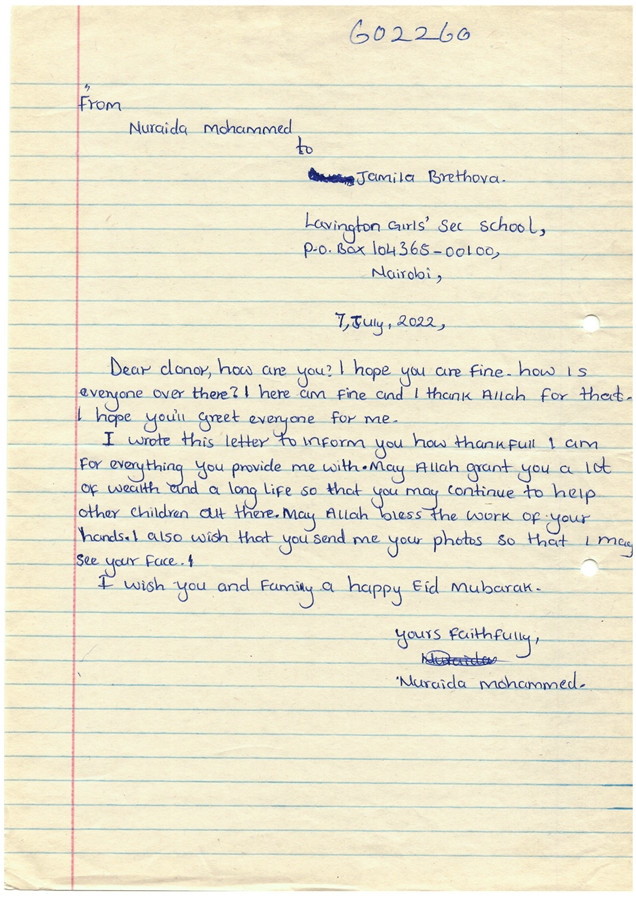 602260
From
Nuraida Mohammed
to
Jamila Brethova.
Lavington Girls' Sec School,
P.O. Box 104365-00100,
Nairobi,
7, July, 2022,
Dear donor, how are you? I hope you are fine. how is
everyone over there? I here am fine and I thank Allah for that.
I hope you'll greet everyone for me.
I wrote this letter to inform you how thankfull I am
for everything you provide me with. May Allah grant you a lot
of wealth and a long life so that you may continue to help
other children out there. May Allah bless the work of your
hands. I also wish that you send me your photos so that I may
see your face.
I wish you and Family a happy Eid Mubarak.
Yours Faithfully,
Nuraida
Nuraida Mohammed.